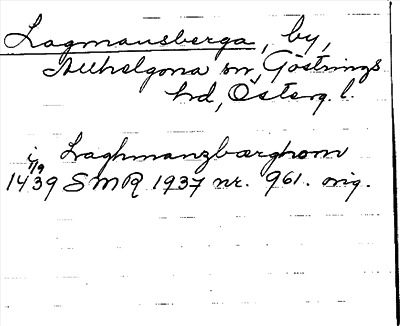 Lagmansberga, by,
Allhelgona sn, Göstrings
hd, Österg. l.
i Laghmanzbærghom
1/9 1439 SMR 1937 nr. 961. orig.